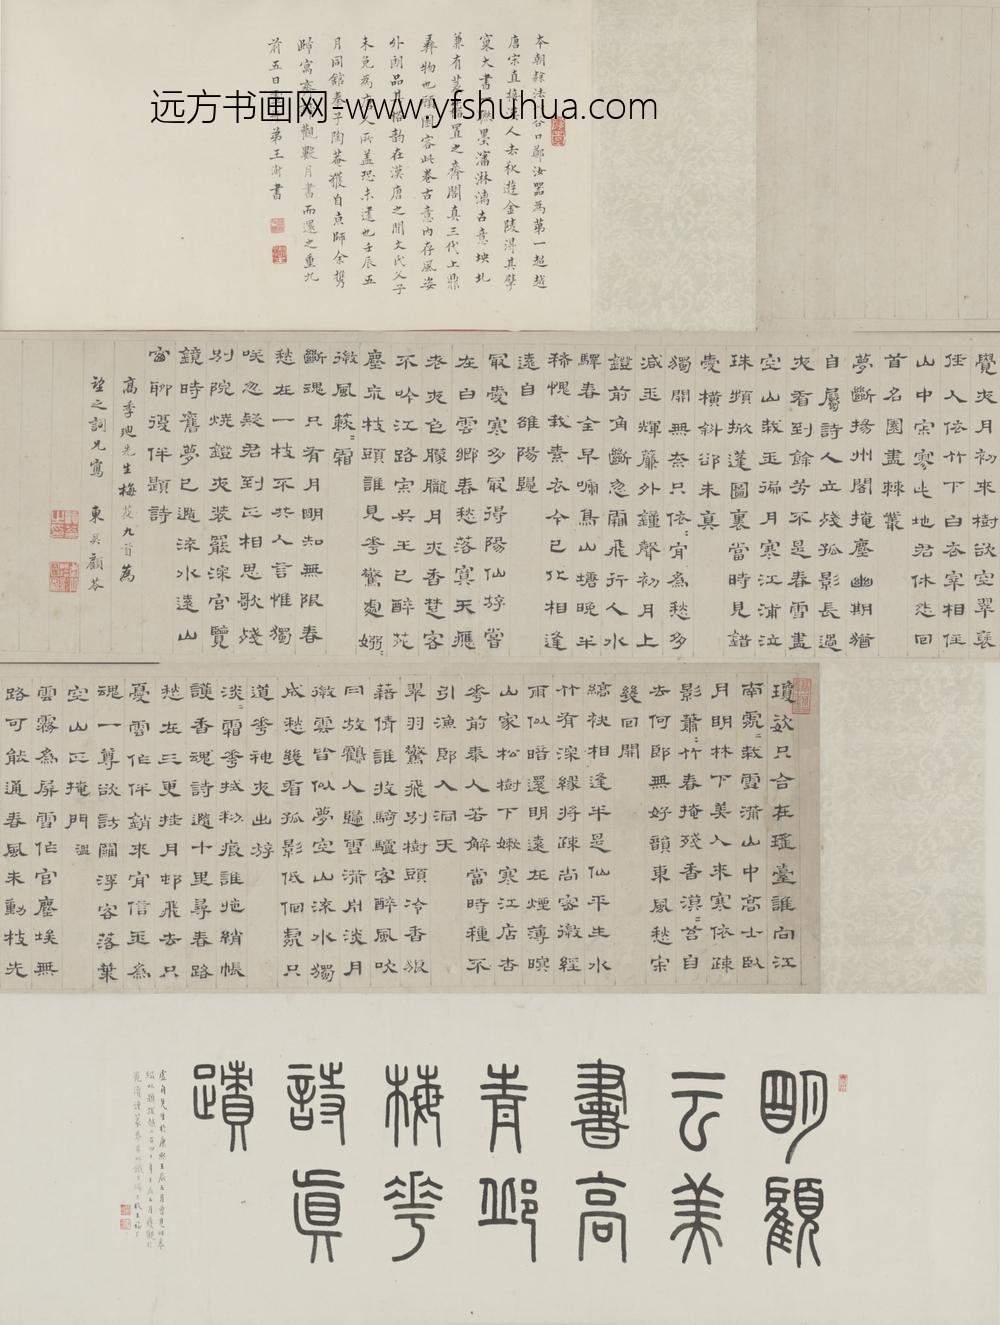 本朝隸法谷口鄭汝器為第一超越
唐宋直接漢人去秋遊金陵得其擘
窠大書聯墨瀋淋漓古意坱圠
兼有置之齋閣真三代上鼎
彝物也頃園客此卷古意內存風姿
外朗品其格韵在漢唐之間文氏父子
未免為唐人所蓋恐未逮也壬辰五
月同館秦子陶菴獲自京師余攜
歸寓齋觀數月書而還之重九
前五日弟王澍書
覺夾月初來樹欲空翠裹
佳人依竹下白衣宰相住
山中寂寥此地君休怨回
首名園盡棘叢
夢斷揚州閣掩塵幽期猶
自屬詩人立殘孤影長過
夾看到餘芳不是春雪盡
空山栽玉徧月寒江浦泣
珠頻掀蓬圖裏當時見錯
愛橫斜卻未真
獨開無奈只依依肯為愁多
減玉輝簾外鐘聲初月上
鐙前角斷忽霜飛行人水
驛春全早嘯鳥山塘晚半
稀愧我素衣今已化相逢
遠自雒陽歸
最愛寒多最得陽仙游嘗
在白雲鄉春愁落寞天應
老夾色朦朧月夾香楚客
不吟江路寂吳王已醉苑
塵荒枝頭誰見華驚處嫋嫋
微風簌簌霜
斷魂只有月明知無限春
愁在一枝不共人言惟獨
咲忽疑君到正相思歌殘
別院燒鐙夾裝罷深宮覽
鏡時舊夢已隨流水遠山
窗聊復伴題詩
高季迪先生梅花九首為
望之詞兄寫 東吳顧苓
瓊姿只合在瑤臺誰向江
南處處栽雪滿山中高士臥
月明林下美人來寒依疎
影蕭蕭竹春掩殘香漠漠苔自
去何郎無好韻東風愁寂
幾回開
縞袂相逢半是仙平生水
竹有深緣將疎尚密微經
雨似暗還明遠在煙薄暝
山家松樹下嫩寒江店杏
華前秦人若解當時種不
引漁郎入洞天
翠羽驚飛別樹頭冷香狼
藉倩誰收騎驢客醉風吹
冃放鶴人歸雪滿舟淡月
微雲皆似夢空山流水獨
成愁幾看孤影低佪處只
道華神夾出游
淡淡霜華拭粉痕誰施綃帳
護香魂詩隨十里尋春路
愁在三更挂月邨飛去只
憂雪作伴銷來肯信玉為
魂一尊欲訪羅浮客落葉
空山正掩門 溫
雲霧為屏雪作宮塵埃無
路可能通春風未動枝先
明顧
云美
書高
青邱
梅華
詩真
蹟
远方书画网-www.yfshuhua.com